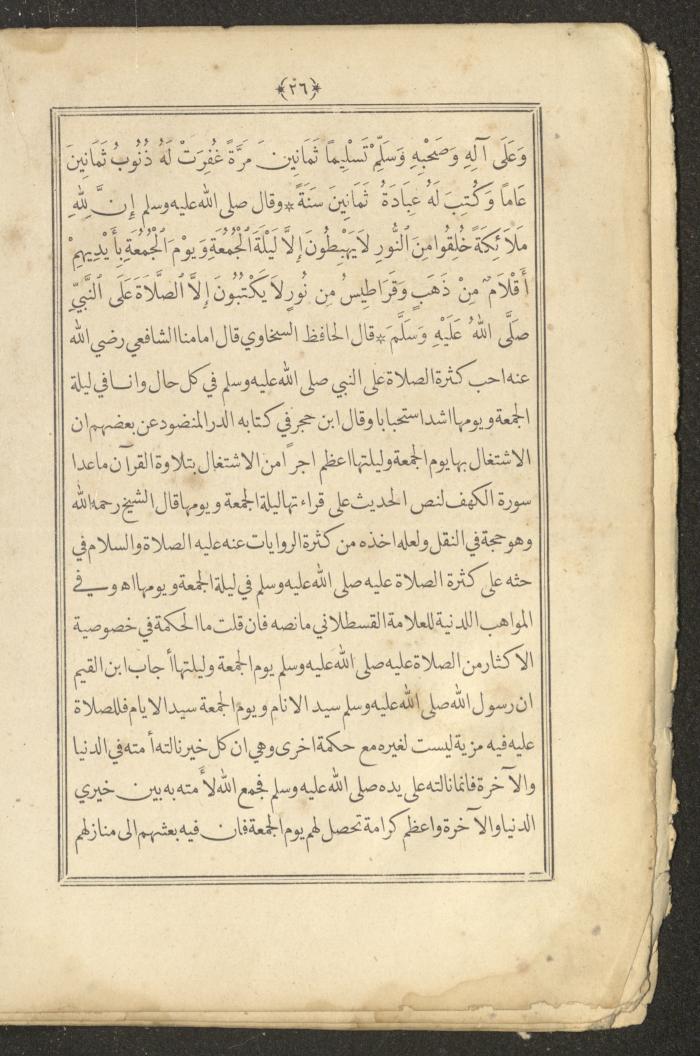 ﴿٢٦﴾
وَعَلَى آلِهِ وَصَحْبِهِ وَسَلِّمْ تَسْلِيمًا ثَمَانِينَ مَرَّةً غُفِرَتْ لَهُ ذُنُوبُ ثَمَانِينَ
عَامًا وَكُتِبَ لَهُ عِبَادَةُ ثَمَانِينَ سَنَةً * وقال صلى الله عليه وسلم إِنَّ لِلهِ
مَلَائِكَةً خُلِقُوا مِنَ ٱلنُّورِ لَا يَهْبِطُونَ إِلَّا لَيْلَةَ ٱلْجُمُعَةِ وَيَوْمَ ٱلْجُمُعَةِ بِأَيْدِيهِمْ
أَقْلَامٌ مِنْ ذَهَبٍ وَقَرَاطِيسُ مِن نُورٍ لَا يَكْتُبُونَ إِلَّا ٱلصَّلَاةَ عَلَى ٱلنَّبِيِّ
صَلَّى اللهُ عَلَيْهِ وَسَلَّمَ * قال الحافظ السخاوي قال امامنا الشافعي رضي الله
عنه احب كثرة الصلاة على النبي صلى الله عليه وسلم في كل حال وانا في ليلة
الجمعة ويومها اشد استحبابا وقال ابن حجر في كتابه الدر المنضود عن بعضهم ان
الاشتغال بها يوم الجمعة وليلتها اعظم اجرًا من الاشتغال بتلاوة القرآن ما عدا
سورة الكهف لنص الحديث على قراءتها ليلة الجمعة ويومها قال الشيخ رحمه الله
وهو حجة في النقل ولعله اخذه من كثرة الروايات عنه عليه الصلاة والسلام في
حثه على كثرة الصلاة عليه صلى الله عليه وسلم في ليلة الجمعة ويومها اه وفي
المواهب اللدنية للعلامة القسطلاني ما نصه فان قلت ما الحكمة في خصوصية
الاكثار من الصلاة عليه صلى الله عليه وسلم يوم الجمعة وليلتها أجاب ابن القيم
ان رسول الله صلى الله عليه وسلم سيد الانام ويوم الجمعة سيد الايام فللصلاة
عليه فيه مزية ليست لغيره مع حكمة اخرى وهي ان كل خير نالته أمته في الدنيا
والآخرة فانما نالته على يده صلى الله عليه وسلم فجمع الله لأمته به بين خيري
الدنيا والآخرة واعظم كرامة تحصل لهم يوم الجمعة فان فيه بعثهم الى منازلهم